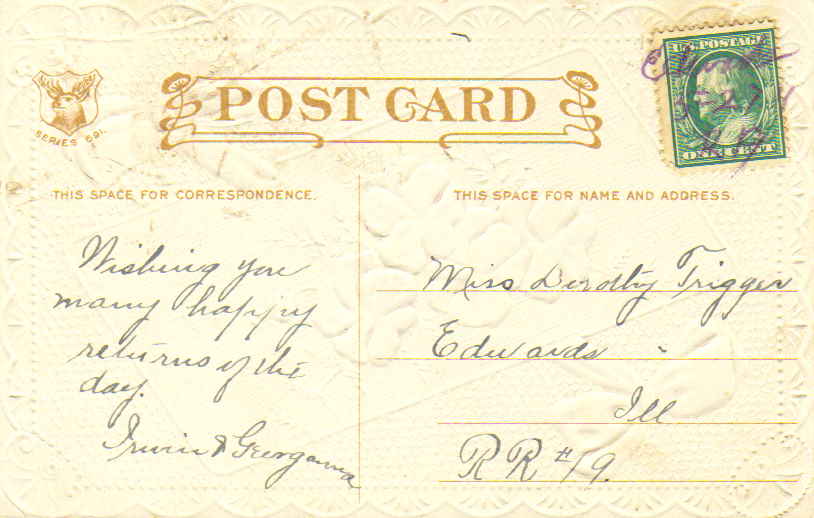 POST CARD
SERIES 591.
U.S. POSTAGE
ONE CENT
THIS SPACE FOR CORRESPONDENCE.
Wishing you
many happy
returns of the
day.
Irwin & Georganna
THIS SPACE FOR NAME AND ADDRESS.
Miss Dorothy Trigger
Edwards
Ill
RR #19.